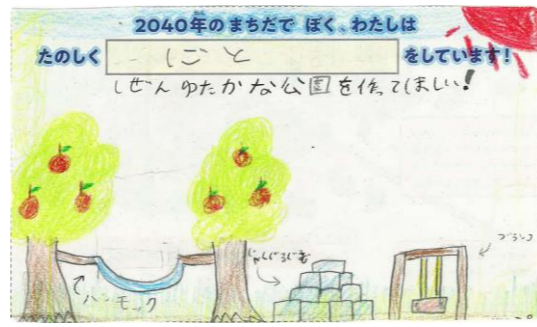 2040年のまちだで ぼく、わたしは
たのしく しごと をしています!
しぜんゆたかな公園を作ってほしい!
ブランコ
じゃんぐるじむ
ハンモック